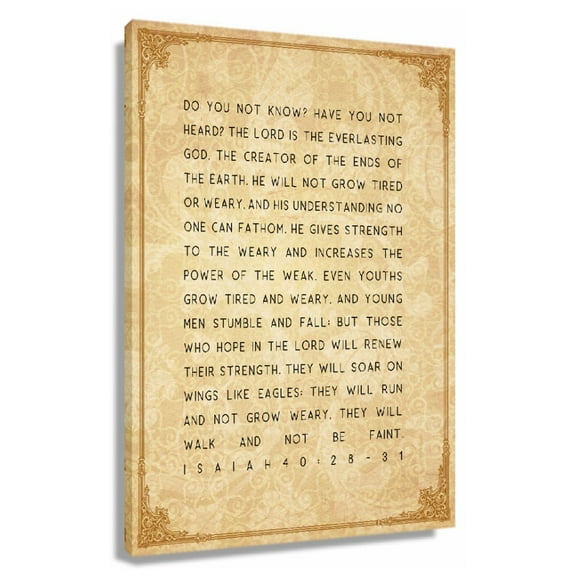 DO YOU NOT KNOW? HAVE YOU NOT
HEARD? THE LORD IS THE EVERLASTING
GOD, THE CREATOR OF THE ENDS OF
THE EARTH. HE WILL NOT GROW TIRED
OR WEARY, AND HIS UNDERSTANDING NO
ONE CAN FATHOM. HE GIVES STRENGTH
TO THE WEARY AND INCREASES THE
POWER OF THE WEAK. EVEN YOUTHS
GROW TIRED AND WEARY, AND YOUNG
MEN STUMBLE AND FALL; BUT THOSE
WHO HOPE IN THE LORD WILL RENEW
THEIR STRENGTH. THEY WILL SOAR ON
WINGS LIKE EAGLES; THEY WILL RUN
AND NOT GROW WEARY, THEY WILL
WALK AND NOT BE FAINT.
ISAIAH40:28-31